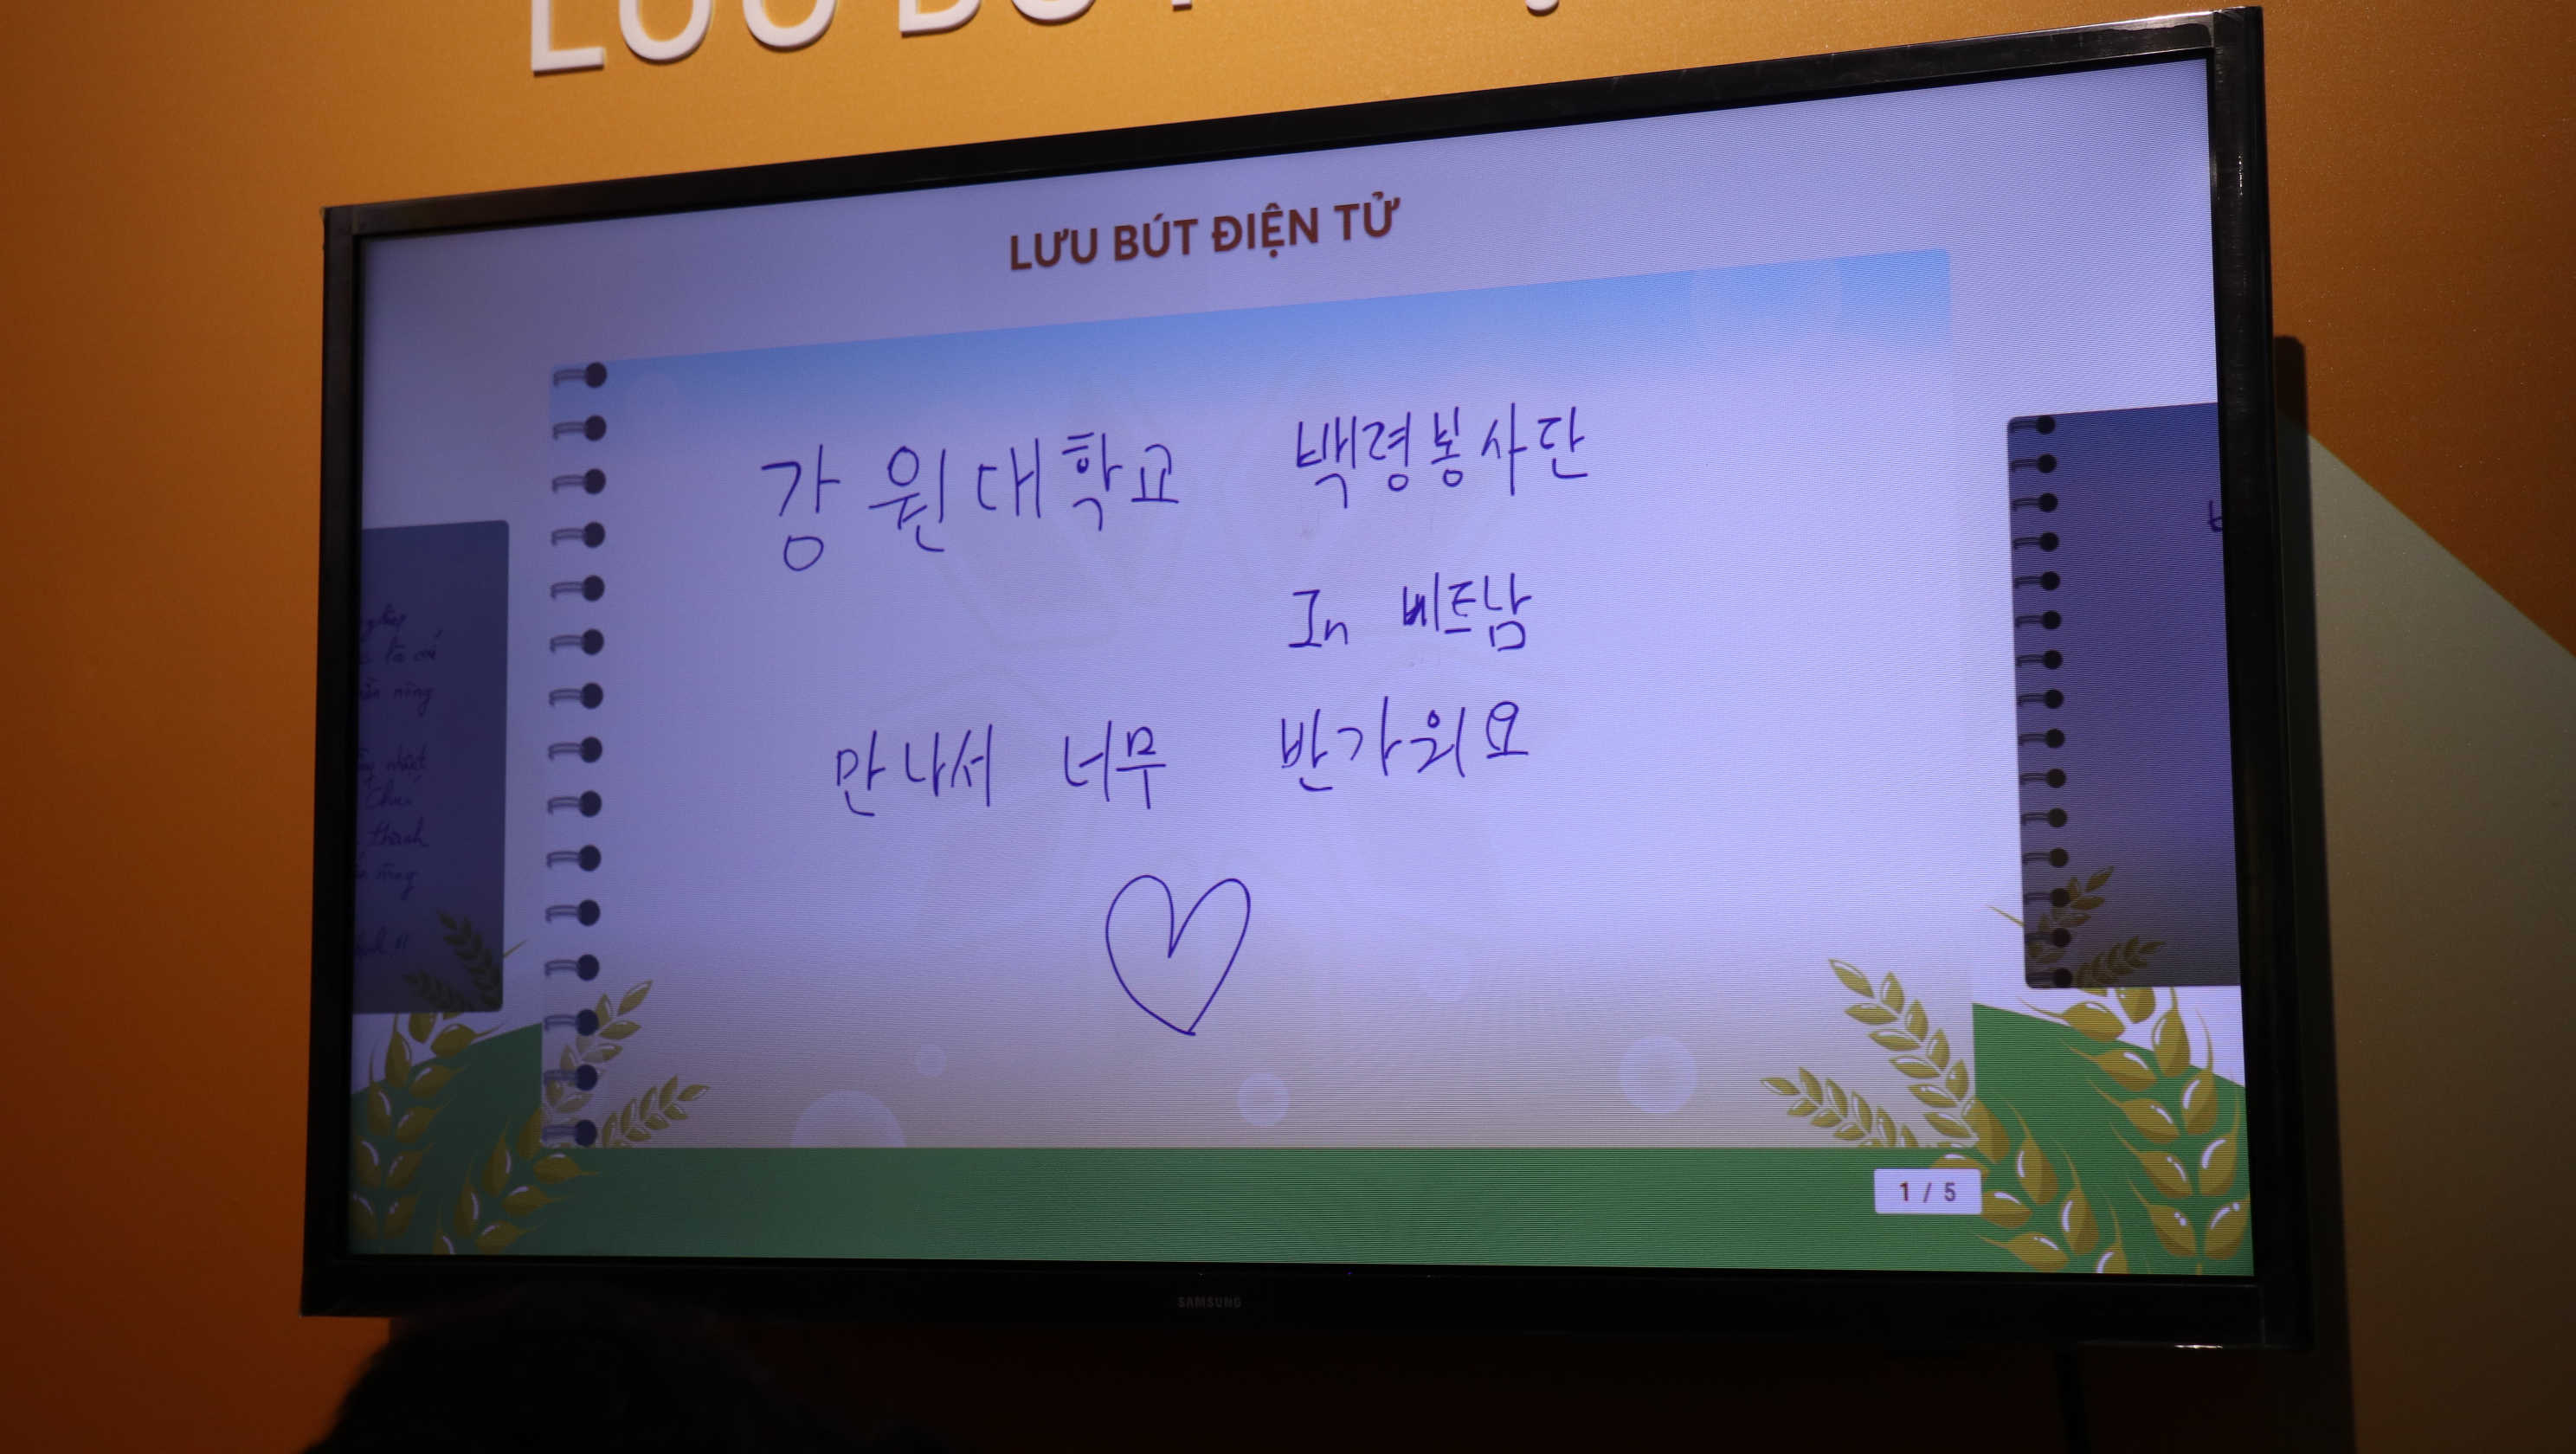 LƯU BÚT ĐIỆN TỬ
강원대학교 백령봉사단
In 베트남
만나서 너무 반가워요
nông
nhiệt
Chúc
thành
nông
1 / 5
SAMSUNG